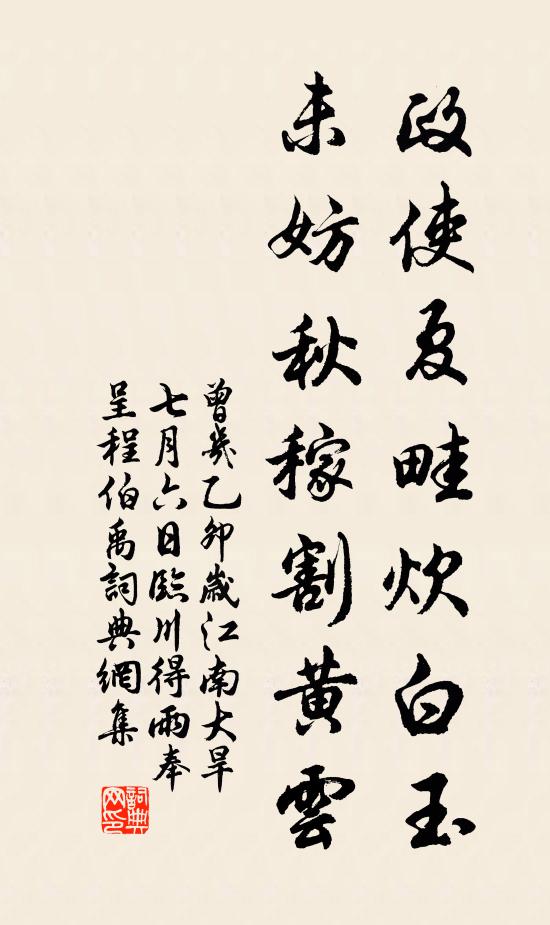 政使夏畦炊白玉
未妨秋稼割黃雲
曾幾乙卯歲江南大旱
七月六日臨川得雨奉
呈程伯禹詞典網集
詞典
网印